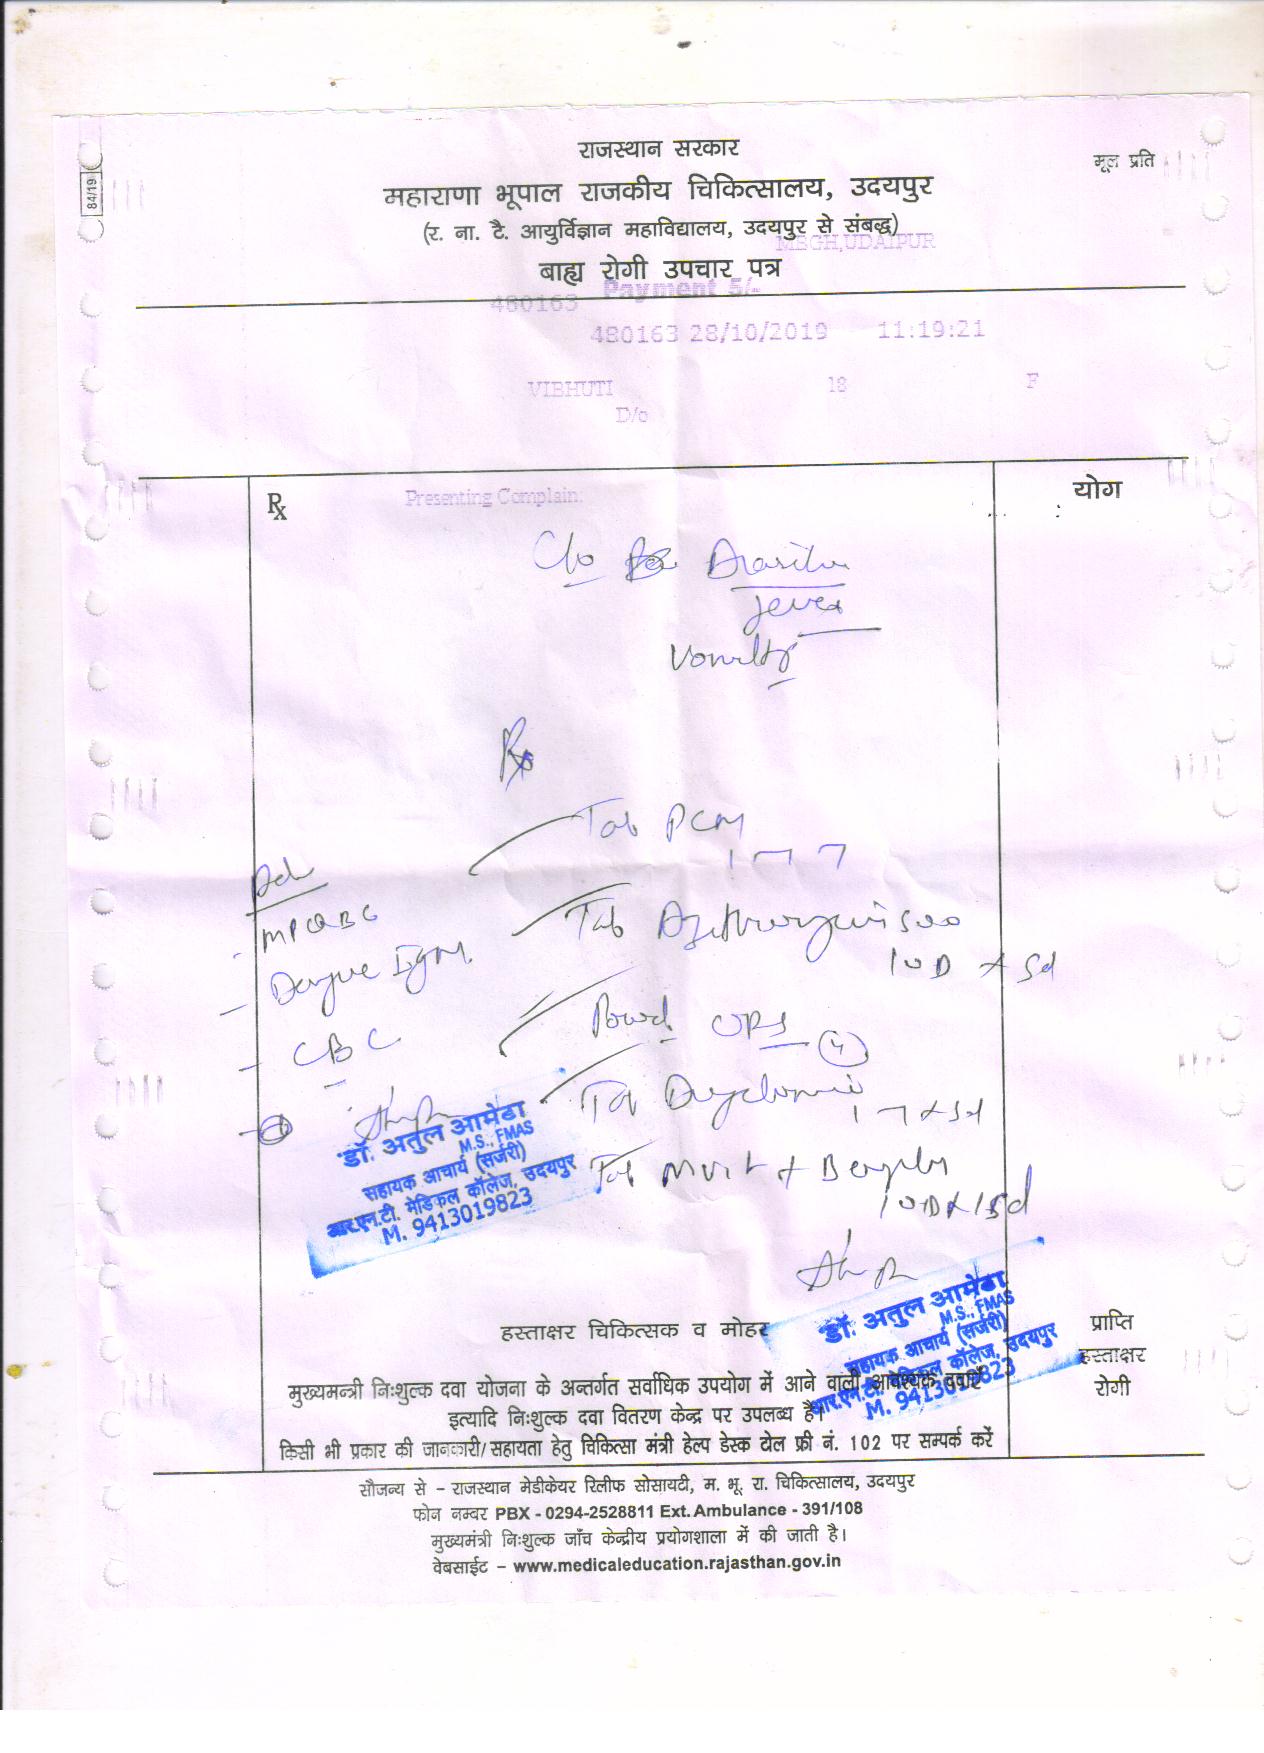 राजस्थान सरकार
मूल प्रति
84/19
महाराणा भूपाल राजकीय चिकित्सालय, उदयपुर
(र. ना. टै. आयुर्विज्ञान महाविद्यालय, उदयपुर से संबद्ध)
MBGH,UDAIPUR
बाह्य रोगी उपचार पत्र
Payment 5/-
480163
480163 28/10/2019 11:19:21
VIBHUTI 18 F
D/o
Rx
Presenting Complain:
योग
C/o
fever
Rx
Tab PCM
Adv
MP QBC
Tab
Dengue IgM
10D x 5d
Powd. ORS 4
CBC
Tab
Tab
डॉ. अतुल आमेटा
M.S., FMAS
सहायक आचार्य (सर्जरी)
आर.एन.टी. मेडिकल कॉलेज, उदयपुर
M. 9413019823
डॉ. अतुल आमेटा
M.S., FMAS
सहायक आचार्य (सर्जरी)
आर.एन.टी. मेडिकल कॉलेज, उदयपुर
M. 9413019823
हस्ताक्षर चिकित्सक व मोहर
प्राप्ति
हस्ताक्षर
रोगी
मुख्यमन्त्री निःशुल्क दवा योजना के अन्तर्गत सर्वाधिक उपयोग में आने वाली आवश्यक दवाएँ
इत्यादि निःशुल्क दवा वितरण केन्द्र पर उपलब्ध है।
किसी भी प्रकार की जानकारी/सहायता हेतु चिकित्सा मंत्री हेल्प डेस्क टोल फ्री नं. 102 पर सम्पर्क करें
सौजन्य से - राजस्थान मेडीकेयर रिलीफ सोसायटी, म. भू. रा. चिकित्सालय, उदयपुर
फोन नम्बर PBX - 0294-2528811 Ext. Ambulance - 391/108
मुख्यमंत्री निःशुल्क जाँच केन्द्रीय प्रयोगशाला में की जाती है।
वेबसाईट - www.medicaleducation.rajasthan.gov.in